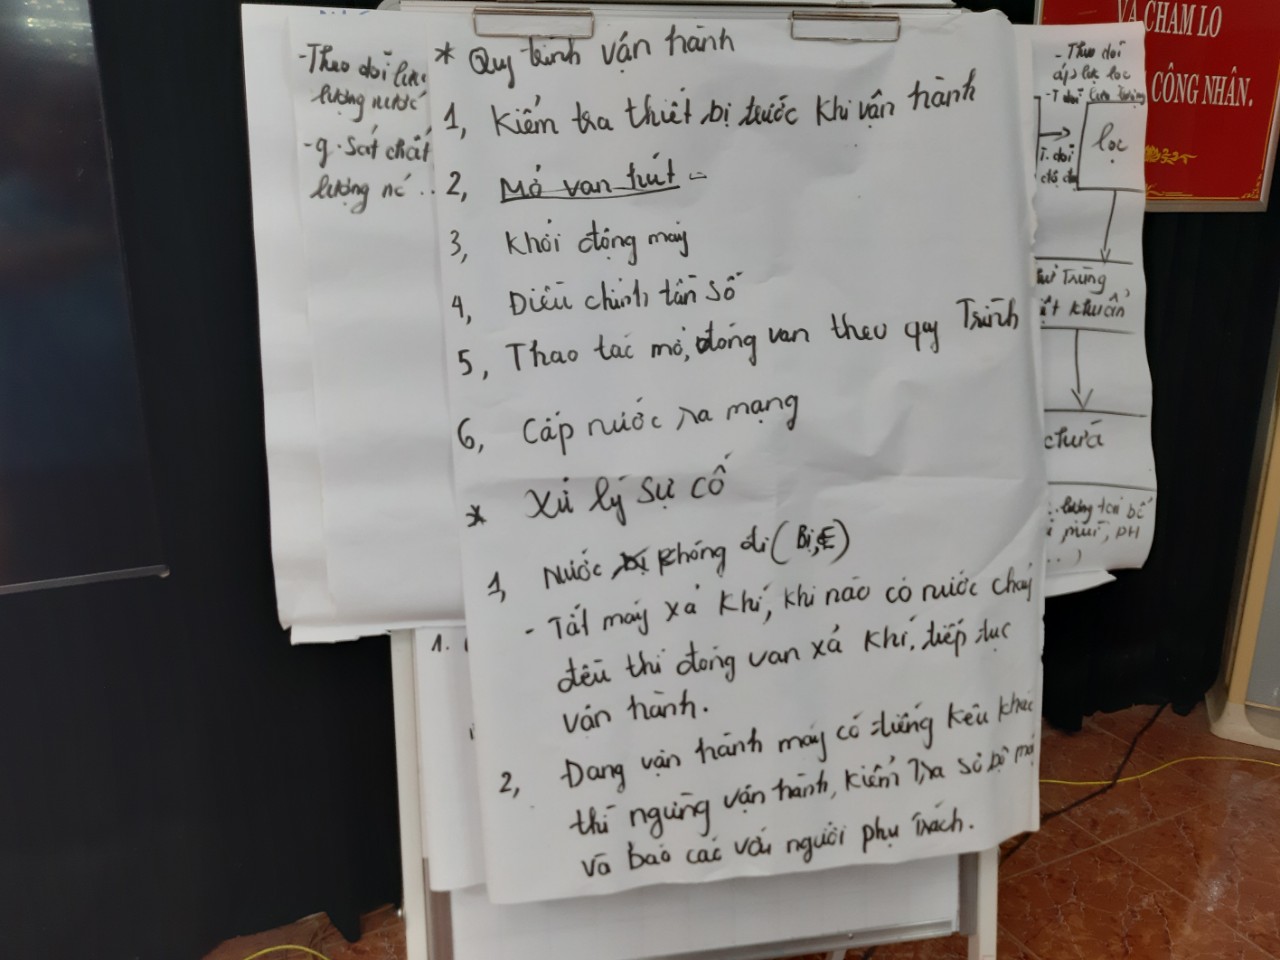 * Quy trình vận hành
1, Kiểm tra thiết bị trước khi vận hành
2, Mở van hút
3, Khởi động máy
4, Điều chỉnh tần số
5, Thao tác mở, đóng van theo quy Trình
6, Cấp nước ra mạng
* Xử lý sự cố
1, Nước không đi (Bị E)
- Tắt máy xả khí, khi nào có nước chảy
đều thì đóng van xả khí, tiếp tục
vận hành.
2, Đang vận hành máy có tiếng kêu khác
thì ngừng vận hành, kiểm Tra sơ bộ
và báo cáo với người phụ Trách.
- Theo dõi lưu
lượng nước
- g. Sát chất
lượng nć ..
1.
VÀ CHĂM LO
CÔNG NHÂN.
- Theo dõi
áp lực lọc
- T dõi lưu lượng
lọc
T. dõi
Trùng
khuẩn
chứa
lượng tại bể
mùi, pH
...)